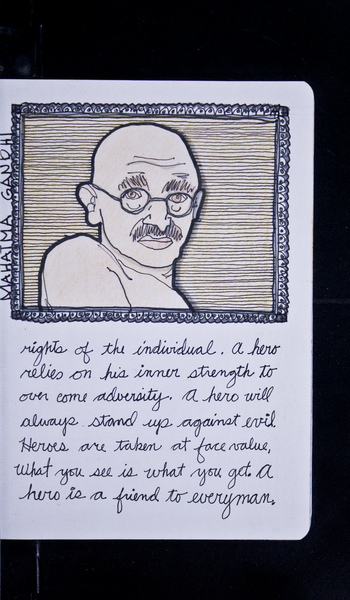 MAHATMA GANDHI
rights of the individual. A hero
relies on his inner strength to
over come adversity. A hero will
always stand up against evil
Heroes are taken at face value,
What you see is what you get. A
hero is a friend to everyman.